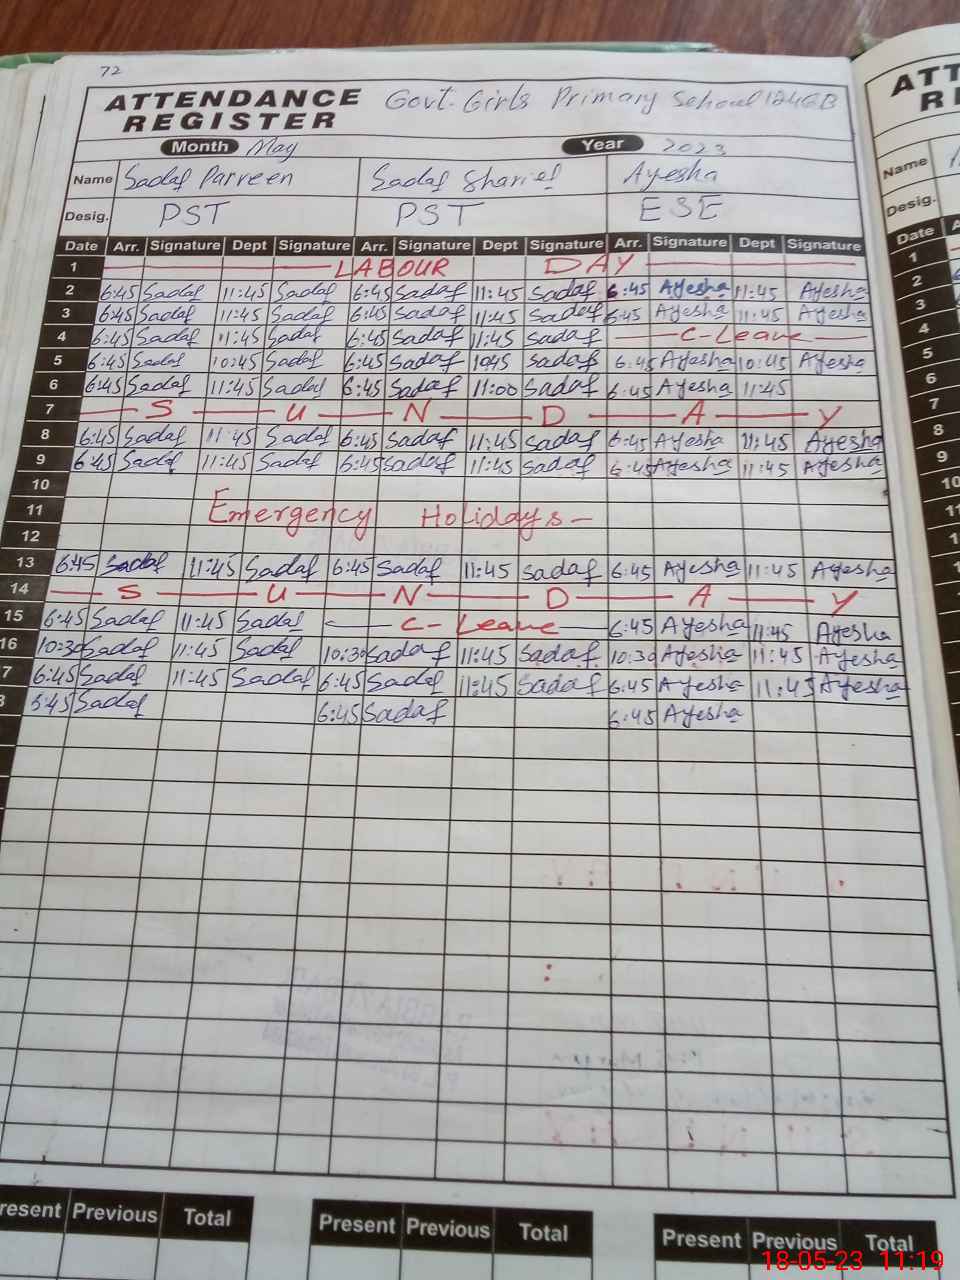 72
ATTENDANCE REGISTER Govt. Girls Primary School 124GB
Month May Year 2023
Name Sadaf Parveen Sadaf Sharief Ayesha
Desig. PST PST ESE
Date Arr. Signature Dept Signature Arr. Signature Dept Signature Arr. Signature Dept Signature
1 LABOUR DAY
2 6:45 Sadaf 11:45 Sadaf 6:45 Sadaf 11:45 Sadaf 6:45 Ayesha 11:45 Ayesha
3 6:45 Sadaf 11:45 Sadaf 6:45 Sadaf 11:45 Sadaf 6:45 Ayesha 11:45 Ayesha
4 6:45 Sadaf 11:45 Sadaf 6:45 Sadaf 11:45 Sadaf C-Leave
5 6:45 Sadaf 10:45 Sadaf 6:45 Sadaf 1045 Sadaf 6:45 Ayesha 10:45 Ayesha
6 6:45 Sadaf 11:45 Sadaf 6:45 Sadaf 11:00 Sadaf 6:45 Ayesha 11:45
7 S U N D A Y
8 6:45 Sadaf 11:45 Sadaf 6:45 Sadaf 11:45 Sadaf 6:45 Ayesha 11:45 Ayesha
9 6:45 Sadaf 11:45 Sadaf 6:45 Sadaf 11:45 Sadaf 6:45 Ayesha 11:45 Ayesha
10
11 Emergency Holidays -
12
13 6:45 Sadaf 11:45 Sadaf 6:45 Sadaf 11:45 Sadaf 6:45 Ayesha 11:45 Ayesha
14 S U N D A Y
15 6:45 Sadaf 11:45 Sadaf C-Leave 6:45 Ayesha 11:45 Ayesha
16 10:30 Sadaf 11:45 Sadaf 10:30 Sadaf 11:45 Sadaf 10:30 Ayesha 11:45 Ayesha
7 6:45 Sadaf 11:45 Sadaf 6:45 Sadaf 11:45 Sadaf 6:45 Ayesha 11:45 Ayesha
6:45 Sadaf 6:45 Sadaf 6:45 Ayesha
resent Previous Total Present Previous Total Present Previous Total
ATT
RE
Name
Desig.
Date A
1
2
3
4
5
6
7
8
9
10
11
1
1
18-05-23 11:19